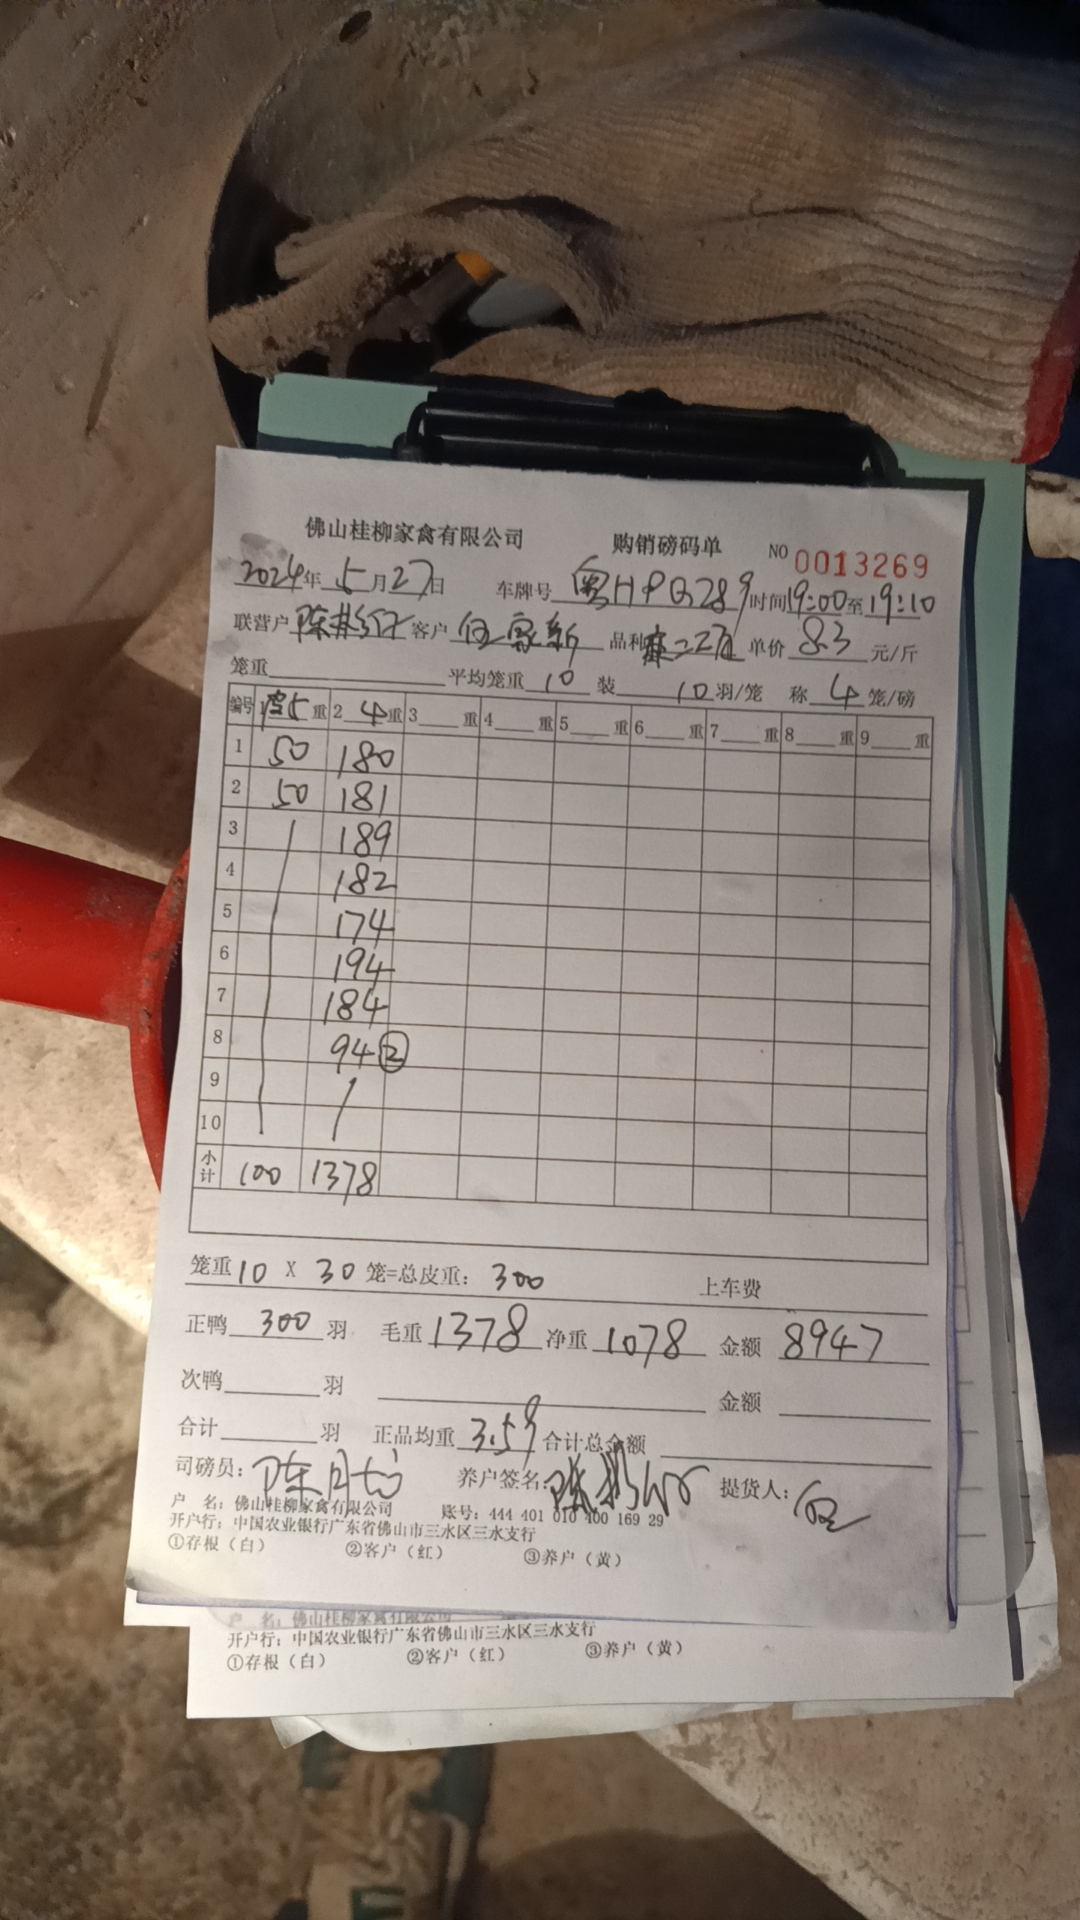 佛山桂柳家禽有限公司 购销磅码单 NO 0013269
2024年 5月27日 车牌号 粤HPQ289 时间19:00至19:10
联营户 陈 客户 伍家新 品种 单价 8.3 元/斤
笼重 平均笼重 10 装 10 羽/笼 称 4 笼/磅
编号 重 2 4 重 3 重 4 重 5 重 6 重 7 重 8 重 9 重
1 50 180
2 50 181
3 189
4 182
5 174
6 194
7 184
8 94 ②
9
10
小计 100 1378
笼重 10 X 30 笼=总皮重: 300 上车费
正鸭 300 羽 毛重 1378 净重 1078 金额 8947
次鸭 羽 金额
合计 羽 正品均重 3.59 合计总金额
司磅员: 陈月 养户签名: 陈 提货人: 伍
户 名: 佛山桂柳家禽有限公司 账号: 444 401 010 400 169 29
开户行: 中国农业银行广东省佛山市三水区三水支行
①存根（白） ②客户（红） ③养户（黄）
户 名: 佛山桂柳家禽有限公司
开户行: 中国农业银行广东省佛山市三水区三水支行
①存根（白） ②客户（红） ③养户（黄）